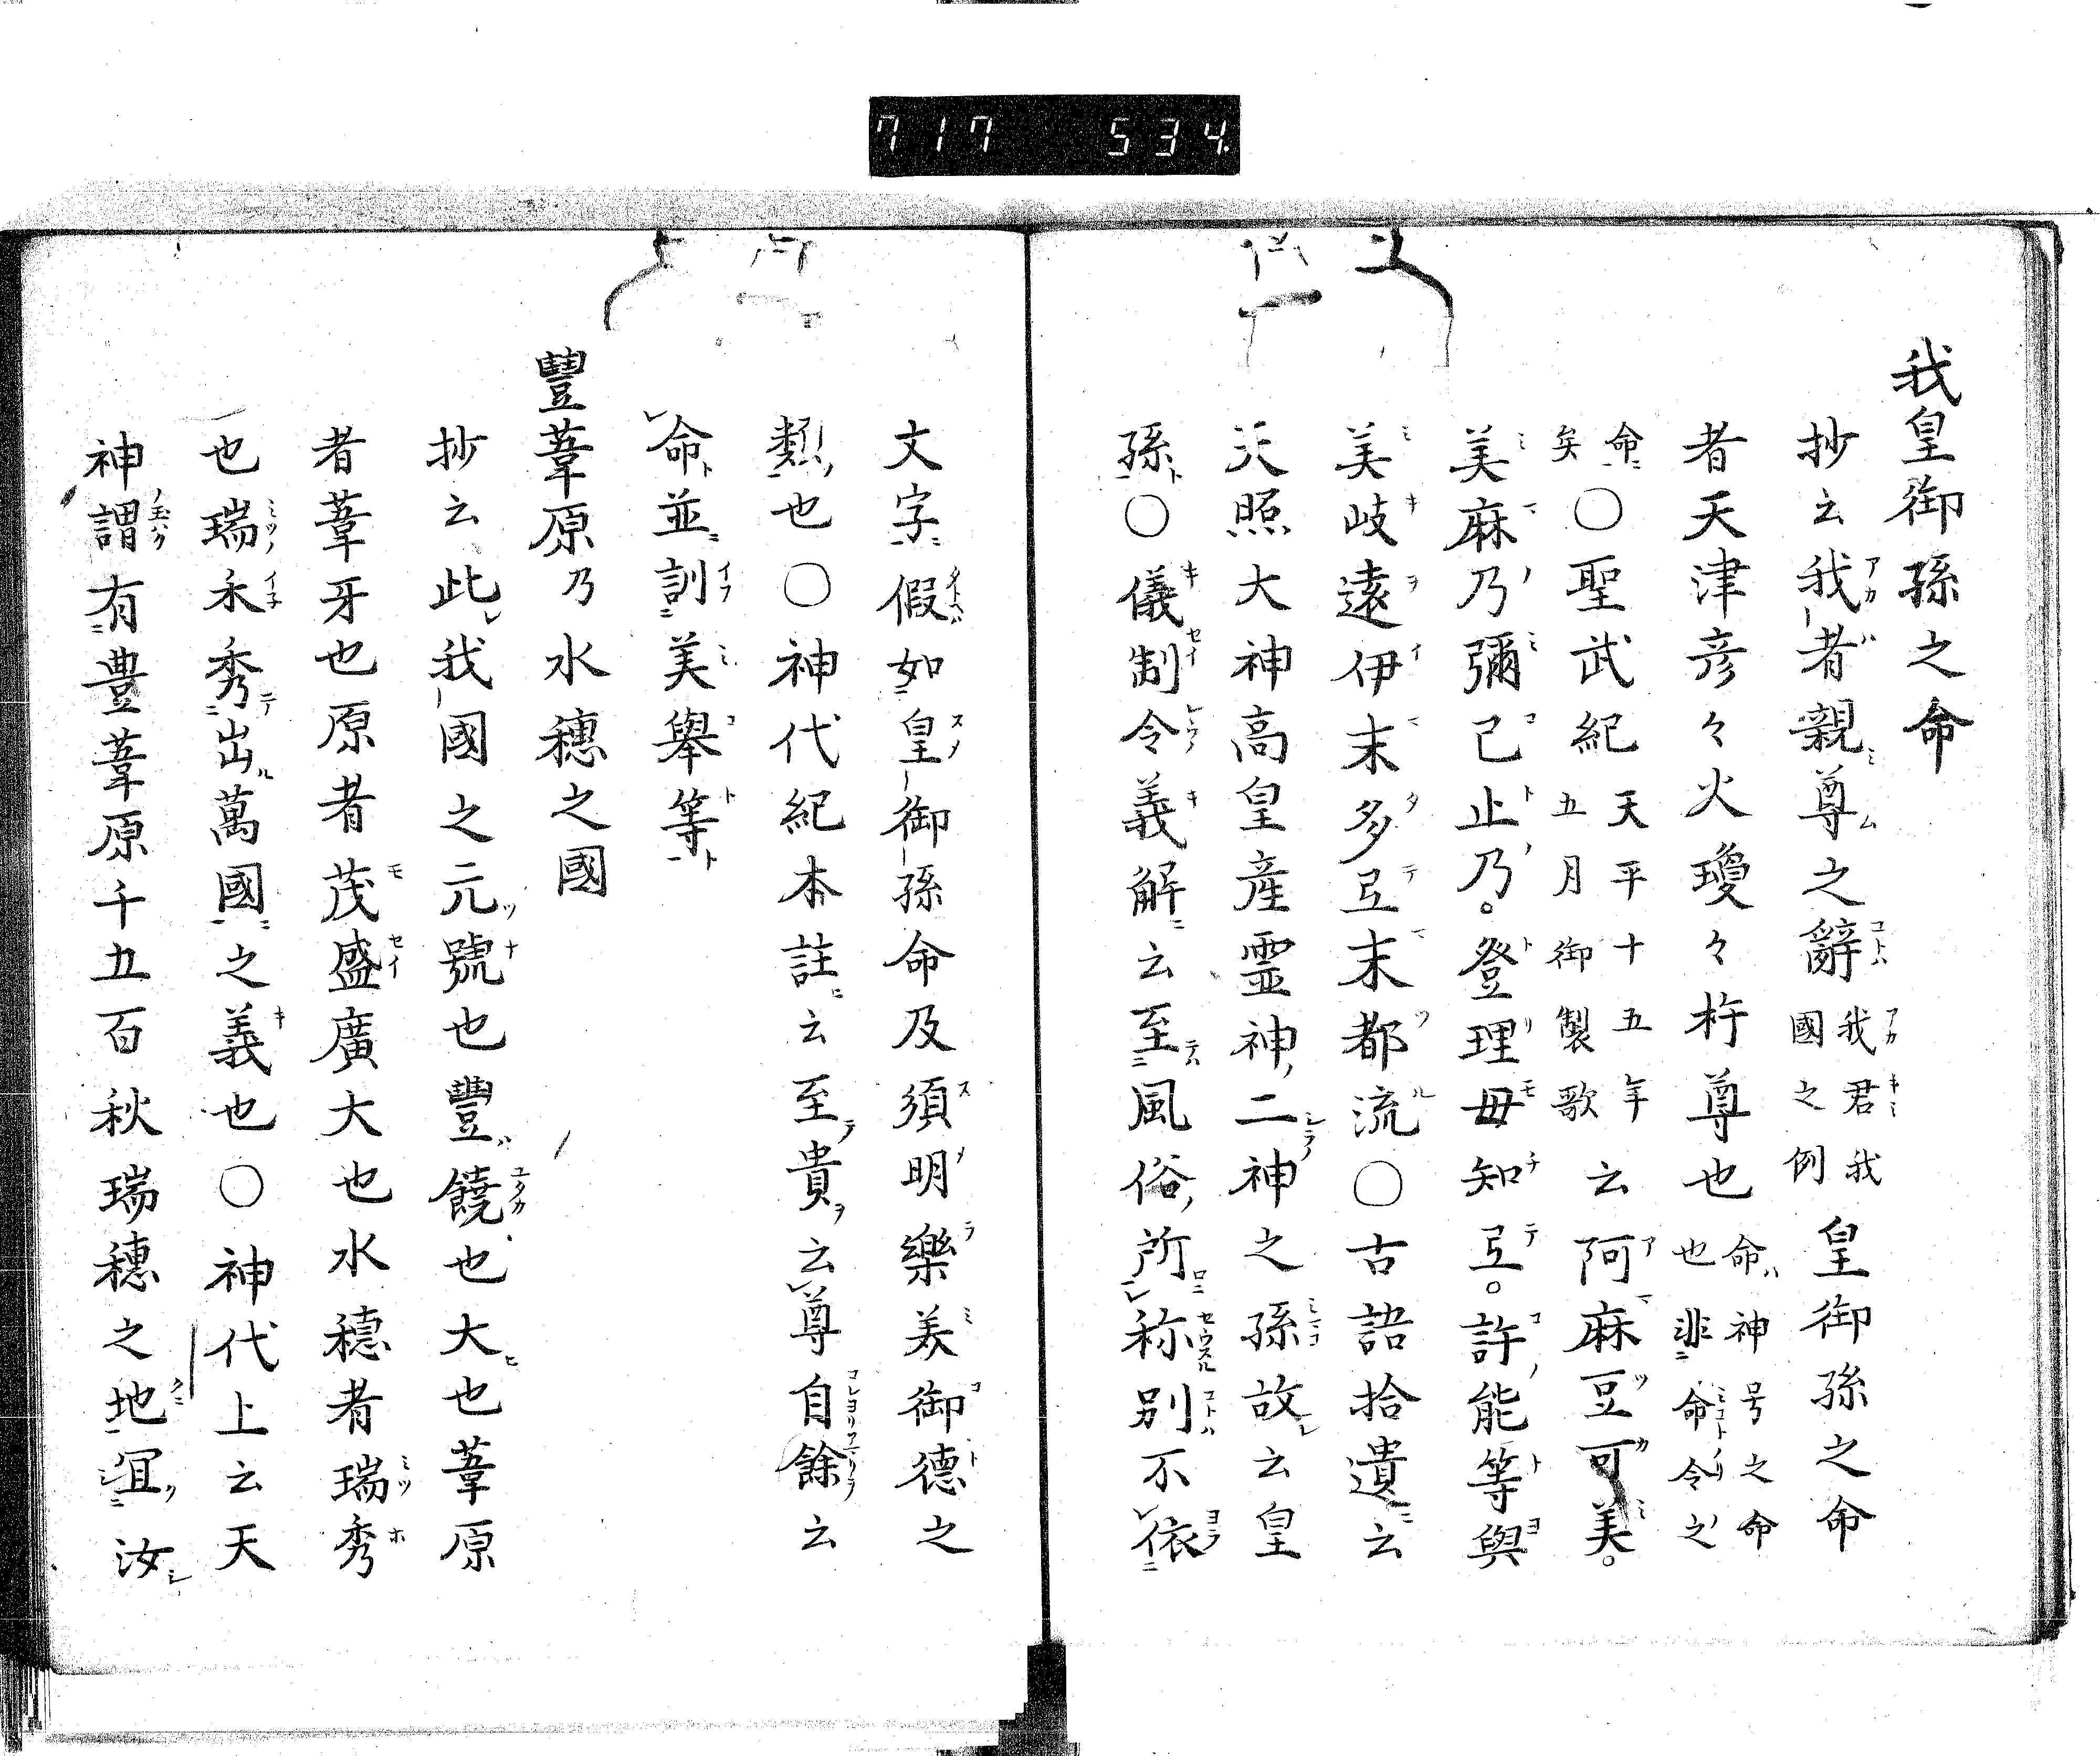 717 534
我皇御孫之命
抄云我者親尊之辭我君我國之例皇御孫之命
者天津彦々火瓊々杵尊也命神号之命也非命令之
命矣○聖武紀天平十五年五月御製歌云阿麻豆可美。
美麻乃彌己止乃。登理毋知弖。許能等與
美岐遠伊末多弖末都流○古語拾遺云
天照大神高皇産霊神二神之孫故云皇
孫○儀制令義解云至風俗所称別不依
文字假如皇御孫命及須明樂美御德之
類也○神代紀本註云至貴云尊自餘云
命並訓美舉等
豐葦原乃水穗之國
抄云此我國之元號也豐饒也大也葦原
者葦牙也原者茂盛廣大也水穗者瑞秀
也瑞禾秀出萬國之義也○神代上云天
神謂有豊葦原千五百秋瑞穗之地宜汝